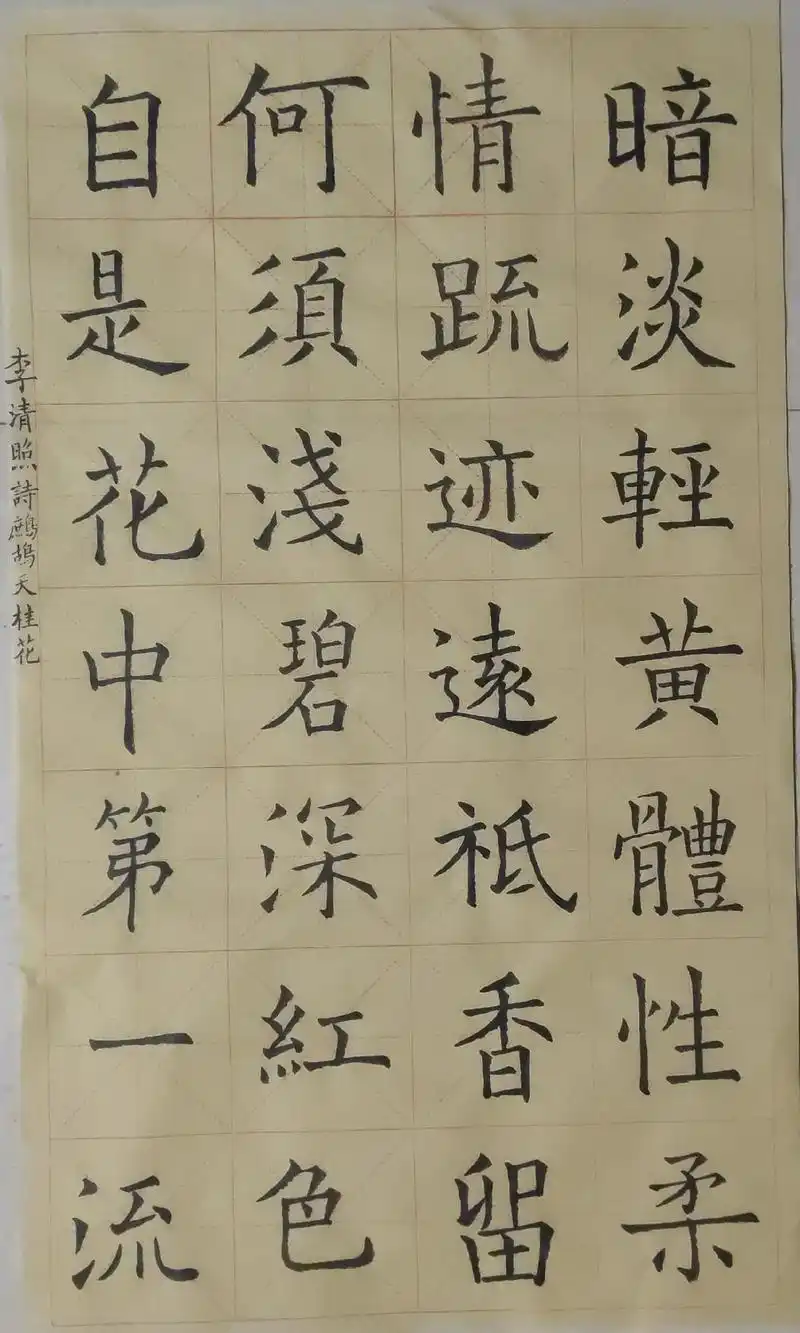 暗淡輕黃體性柔
情䟽迹遠祗香留
何須淺碧深紅色
自是花中第一流
李清照詩鷓鴣天桂花